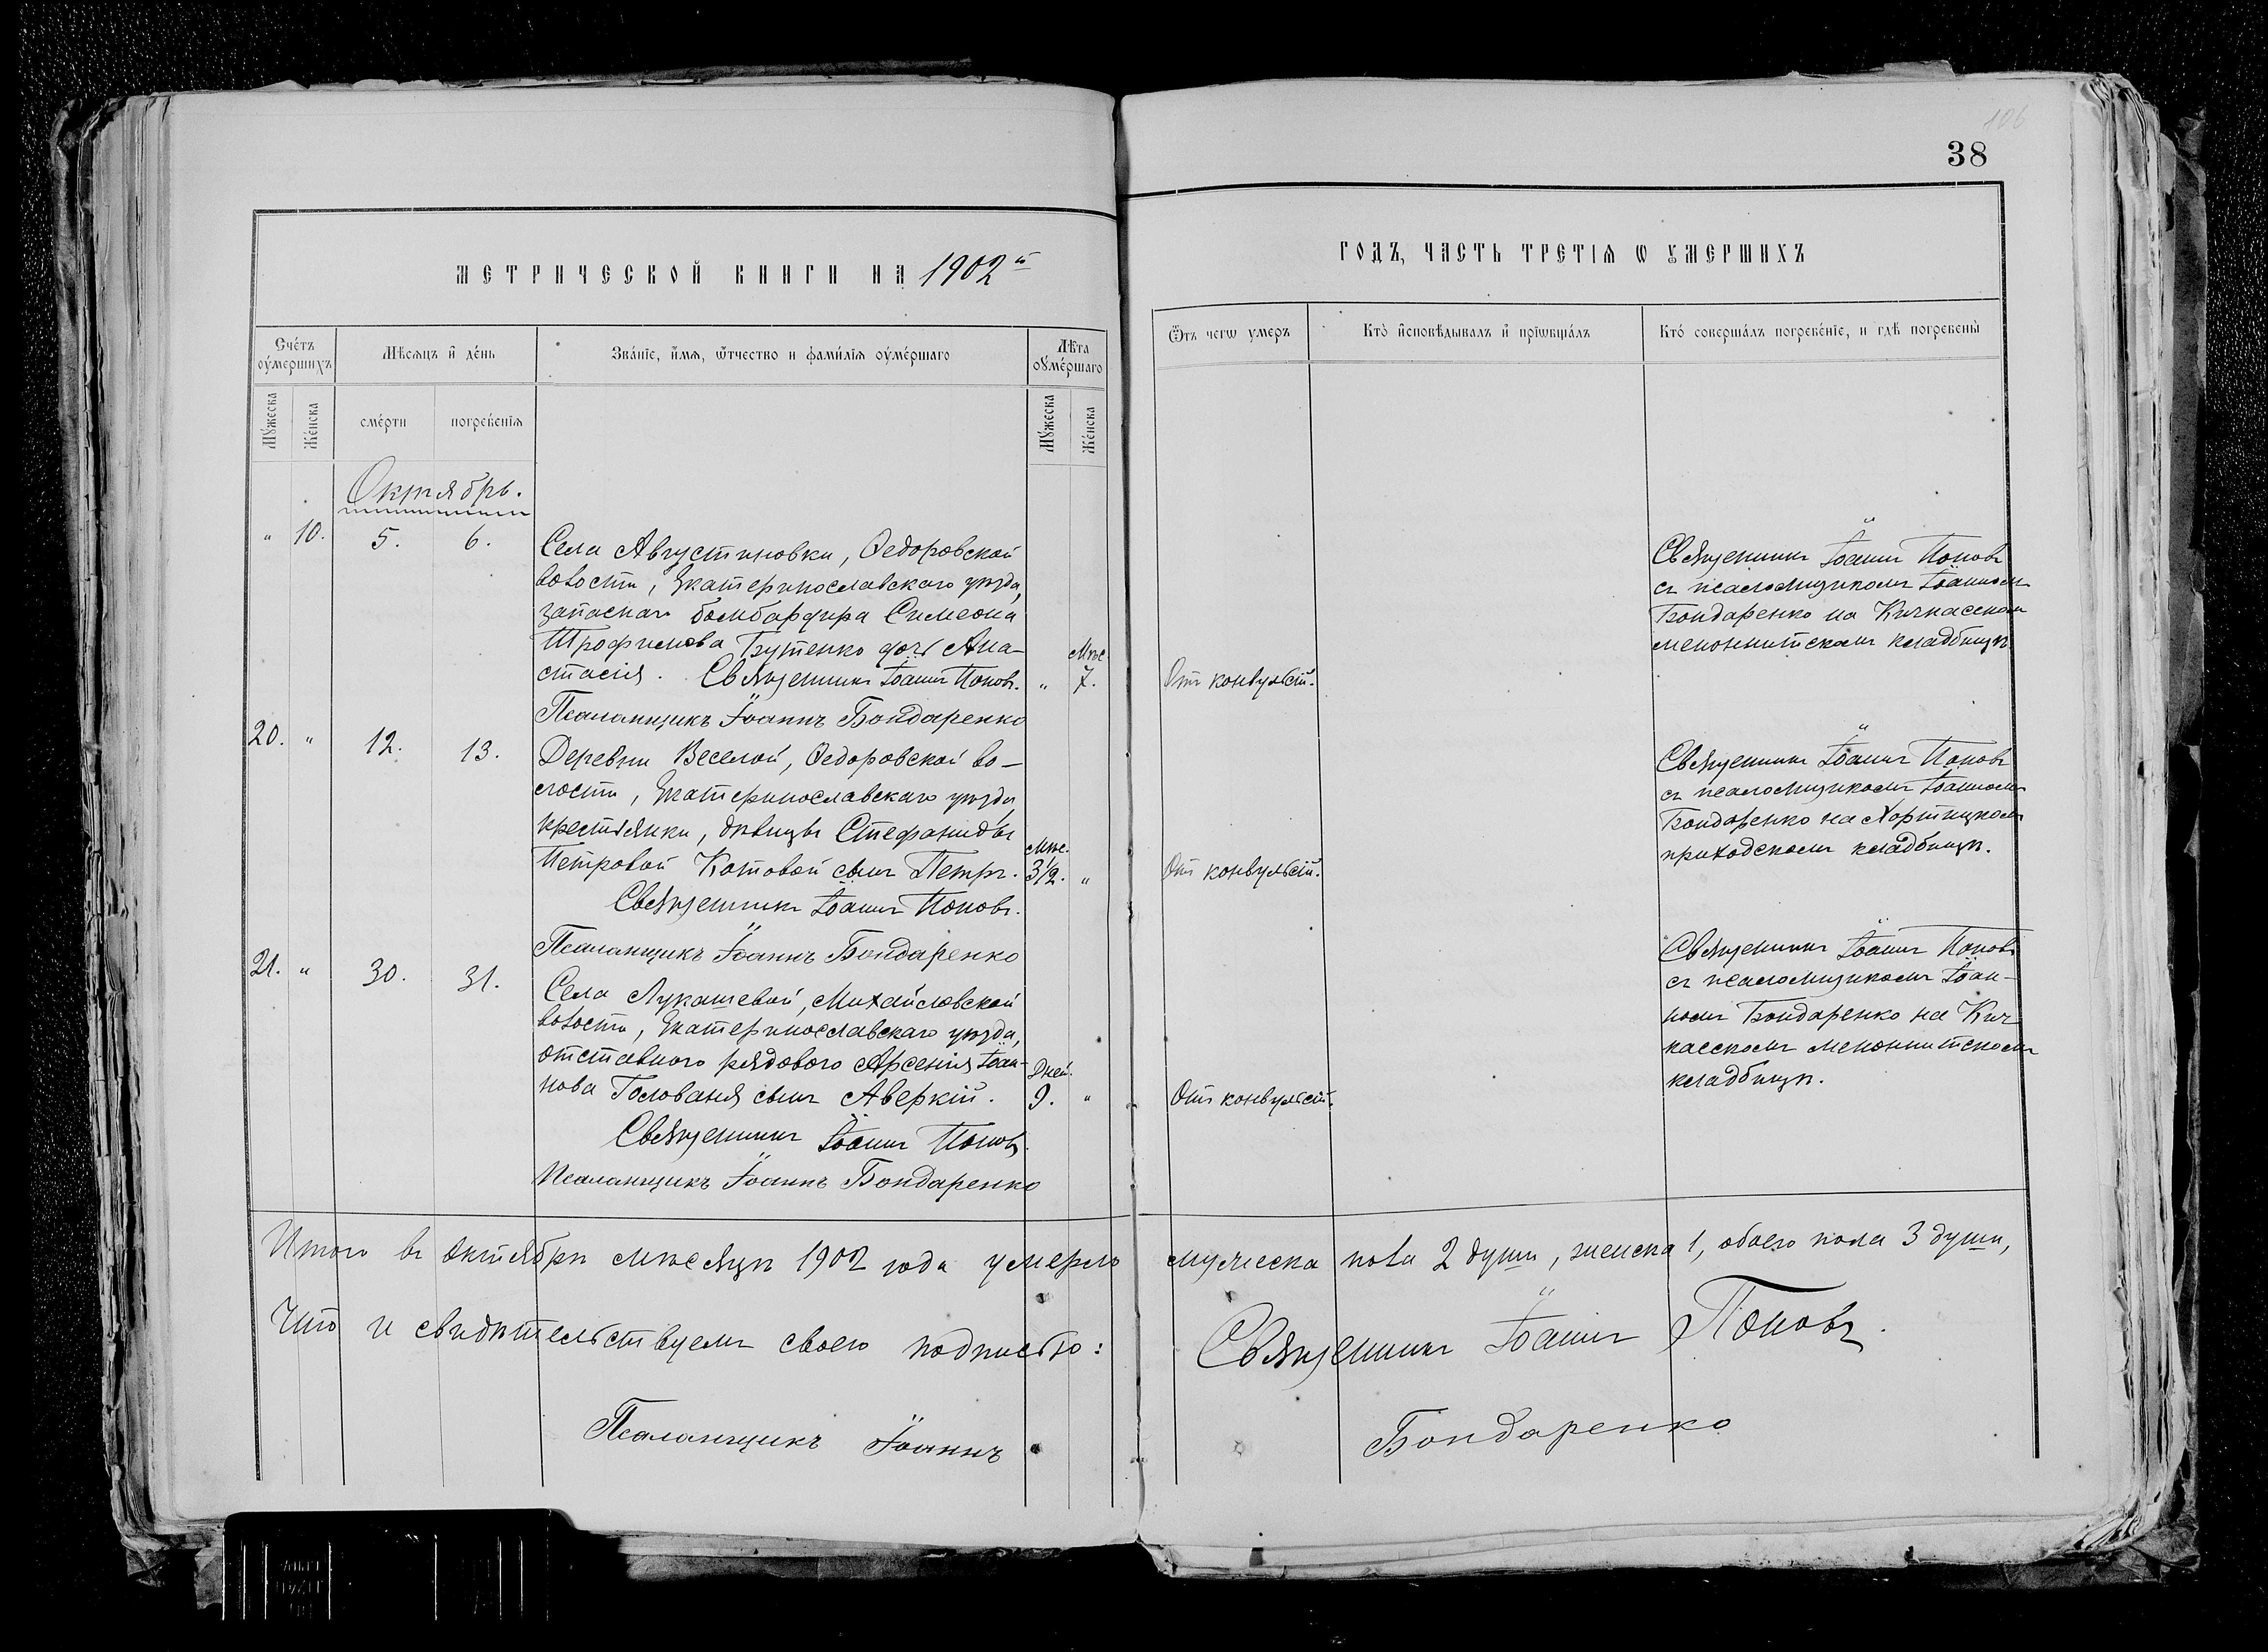 106
38
МЕТРИЧЕСКОЙ КНИГИ НА 1902й
ГОДЪ, ЧАСТЬ ТРЕТІѦ Ѡ ᲂУМЕРШИХЪ
Сче́тъ ᲂу҆ме́ршихъ
Мѣсѧцъ и҆ де́нь
Зва́нїе, и҆́мѧ, ѿтчество и фами́лїѧ ᲂу҆ме́ршаго
Лѣ́та ᲂу҆ме́ршаго
Му́жеска
Же́нска
сме́рти
погребе́нїѧ
Му́жеска
Же́нска
Ѿ чегѡ умеръ
Кто̀ и҆сповѣ́дывалъ и҆ прїѡбща́лъ
Кто́ соверша́лъ погребе́нїе, и гдѣ̀ погребены̀
Октябрь.
" 10. 5. 6.
Села Августиновки, Ѳедоровской
волости, Екатеринославскаго уѣзда,
запаснаго бомбардира Симеона
Трофимова Бутенко дочь Ана-
стасія. Священникъ Іоаннъ Поповъ.
Псаломщикъ Іоаннъ Бондаренко
Мѣс.
" 7.
Отъ конвульсій.
Священникъ Іоаннъ Поповъ
съ псаломщикомъ Іоанномъ
Бондаренко на Кичкасскомъ
менонитскомъ кладбищѣ.
20. " 12. 13.
Деревни Веселой, Ѳедоровской во-
лости, Екатеринославскаго уѣзда,
крестьянки, дѣвицы Стефаниды
Петровой Котовой сынъ Петръ.
Священникъ Іоаннъ Поповъ.
Псаломщикъ Іоаннъ Бондаренко
Мѣс.
3½. "
Отъ конвульсій.
Священникъ Іоаннъ Поповъ
съ псаломщикомъ Іоанномъ
Бондаренко на Хортицкомъ
приходскомъ кладбищѣ.
21. " 30. 31.
Села Лукашевой, Михайловской
волости, Екатеринославскаго уѣзда,
отставного рядового Арсенія Іоан-
нова Голованя сынъ Аверкій.
Священникъ Іоаннъ Поповъ
Псаломщикъ Іоаннъ Бондаренко
Дней.
9. "
Отъ конвульсій.
Священникъ Іоаннъ Поповъ
съ псаломщикомъ Іоан-
номъ Бондаренко на Кич-
касскомъ менонитскомъ
кладбищѣ.
Итого въ октябрѣ мѣсяцѣ 1902 года умерло мужеска пола 2 души, женска 1, обоего пола 3 души,
Что и свидѣтельствуемъ своею подписью: Священникъ Іоаннъ Поповъ.
Псаломщикъ Іоаннъ Бондаренко